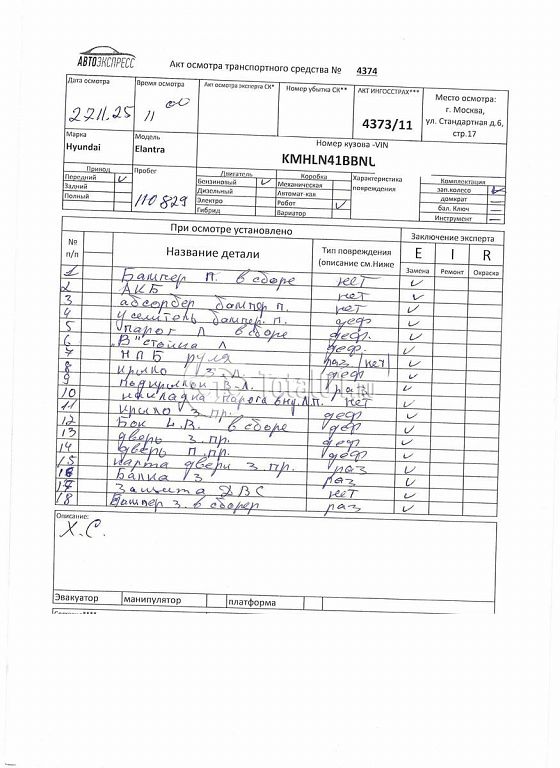 АВТОЭКСПРЕСС
Акт осмотра транспортного средства № 4374
Дата осмотра
27.11.25
Время осмотра
11 00
Акт осмотра эксперта СК*
Номер убытка СК**
АКТ ИНГОССТРАХ***
4373/11
Место осмотра:
г. Москва,
ул. Стандартная д.6,
стр.17
Марка
Hyundai
Модель
Elantra
Номер кузова -VIN
KMHLN41BBNU
Привод
Передний ✓
Задний
Полный
Пробег
110829
Двигатель
Бензиновый ✓
Дизельный
Электро
Гибрид
Коробка
Механическая
Автомат-кая
Робот ✓
Вариатор
Характеристика
повреждения
Комплектация
зап.колесо ✓
домкрат —
бал. Ключ —
Инструмент —
При осмотре установлено
Заключение эксперта
№
п/п
Название детали
Тип повреждения
(описание см.Ниже
E I R
Замена Ремонт Окраска
1 Бампер п. в сборе нет ✓
2 АКБ нет ✓
3 абсорбер бампер п. нет ✓
4 уселитель бампер. п. деф ✓
5 парог Л в сборе деф. ✓
6 "В" стойка Л деф. ✓
7 НПБ руля раз/нет ✓
8 крыло з.л. ✓
9 Подкрылок з.л. раз ✓
10 накладка парога вну.л.п. нет ✓
11 крыло з.пр. деф ✓
12 Бок в сборе деф ✓
13 дверь з.пр. деф ✓
14 дверь п.пр. деф ✓
15 карта двери з.пр. раз ✓
16 Балка з раз ✓
17 Защита ДВС нет ✓
18 Бампер з. в сборер раз ✓
Описание:
Х.С.
Эвакуатор манипулятор платформа